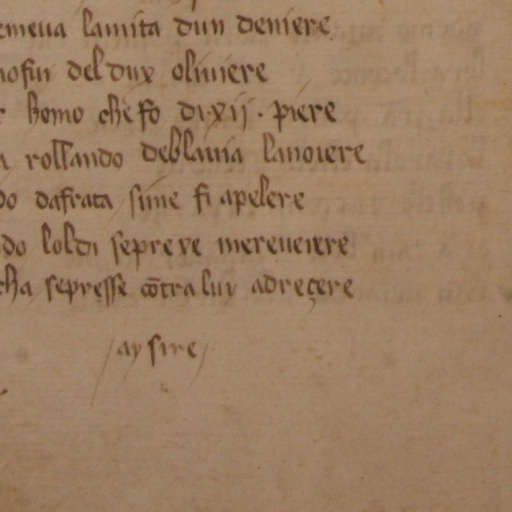 emeua lamita dun deniere
nofu del dux oliuiere
homo che fo di·xij· piere
rollando deblauia lanoiere
do dafrata sine fi apelere
do loldi seprexe mereueiere
cha sepresse cōtra luy adreçere
ay sire